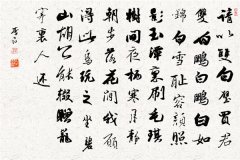 請以雙白璧買君
雙白鷴白鷴白如
錦白雪恥容顏照
影玉潭裏刷毛琪
樹間夜棲寒月靜
朝步落花閑我願
得此鳥玩之坐碧
山胡公能輟贈籠
寄野人還